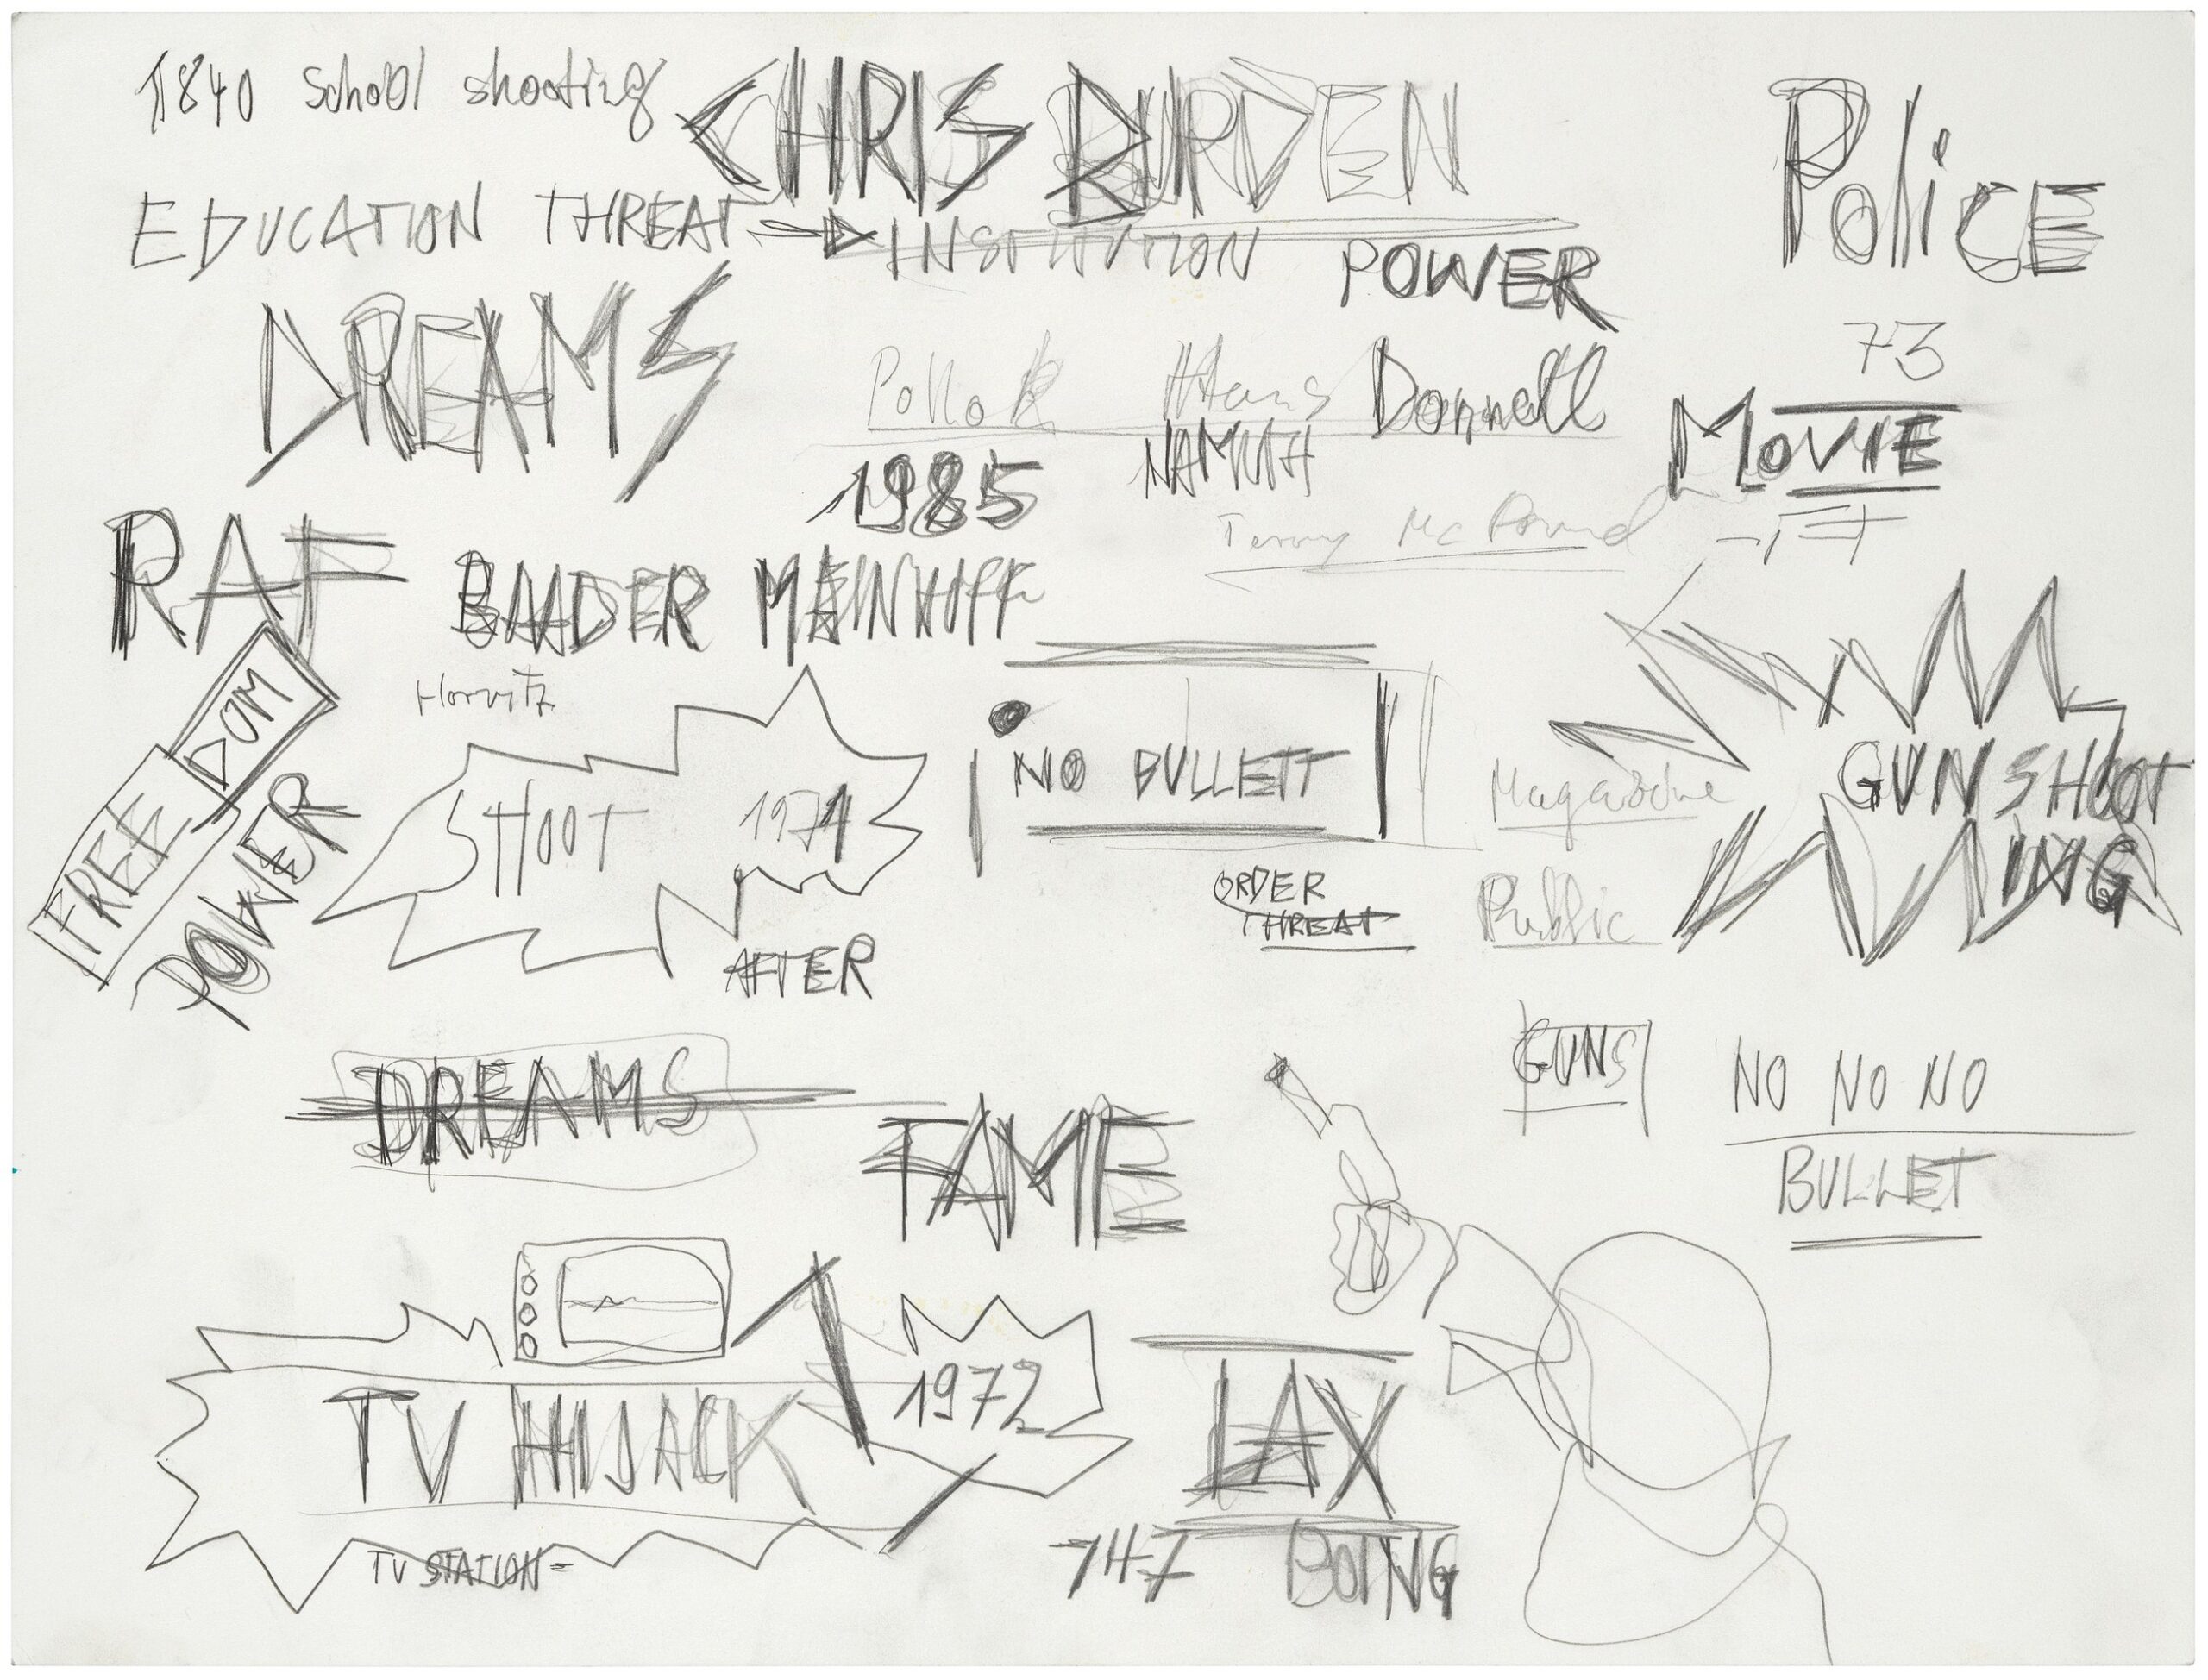 1840 School shooting
CHRIS BURDEN
Police
EDUCATION THREAT INSTITUTION POWER
DREAMS
73
Pollok Hans Donnell
MOVIE
NAMUTH
1985
Terry Mc
RAF
BAADER MEINHOFF
Horvitz
FREE DOM
POWER
SHOOT 1971
NO BULLETT
Magazine
GUN SHOOT
ING
ORDER
THREAT
Public
AFTER
GUNS
NO NO NO
BULLET
DREAMS
FAME
TV HIJACK
1972
LAX
TV STATION
747 BOING